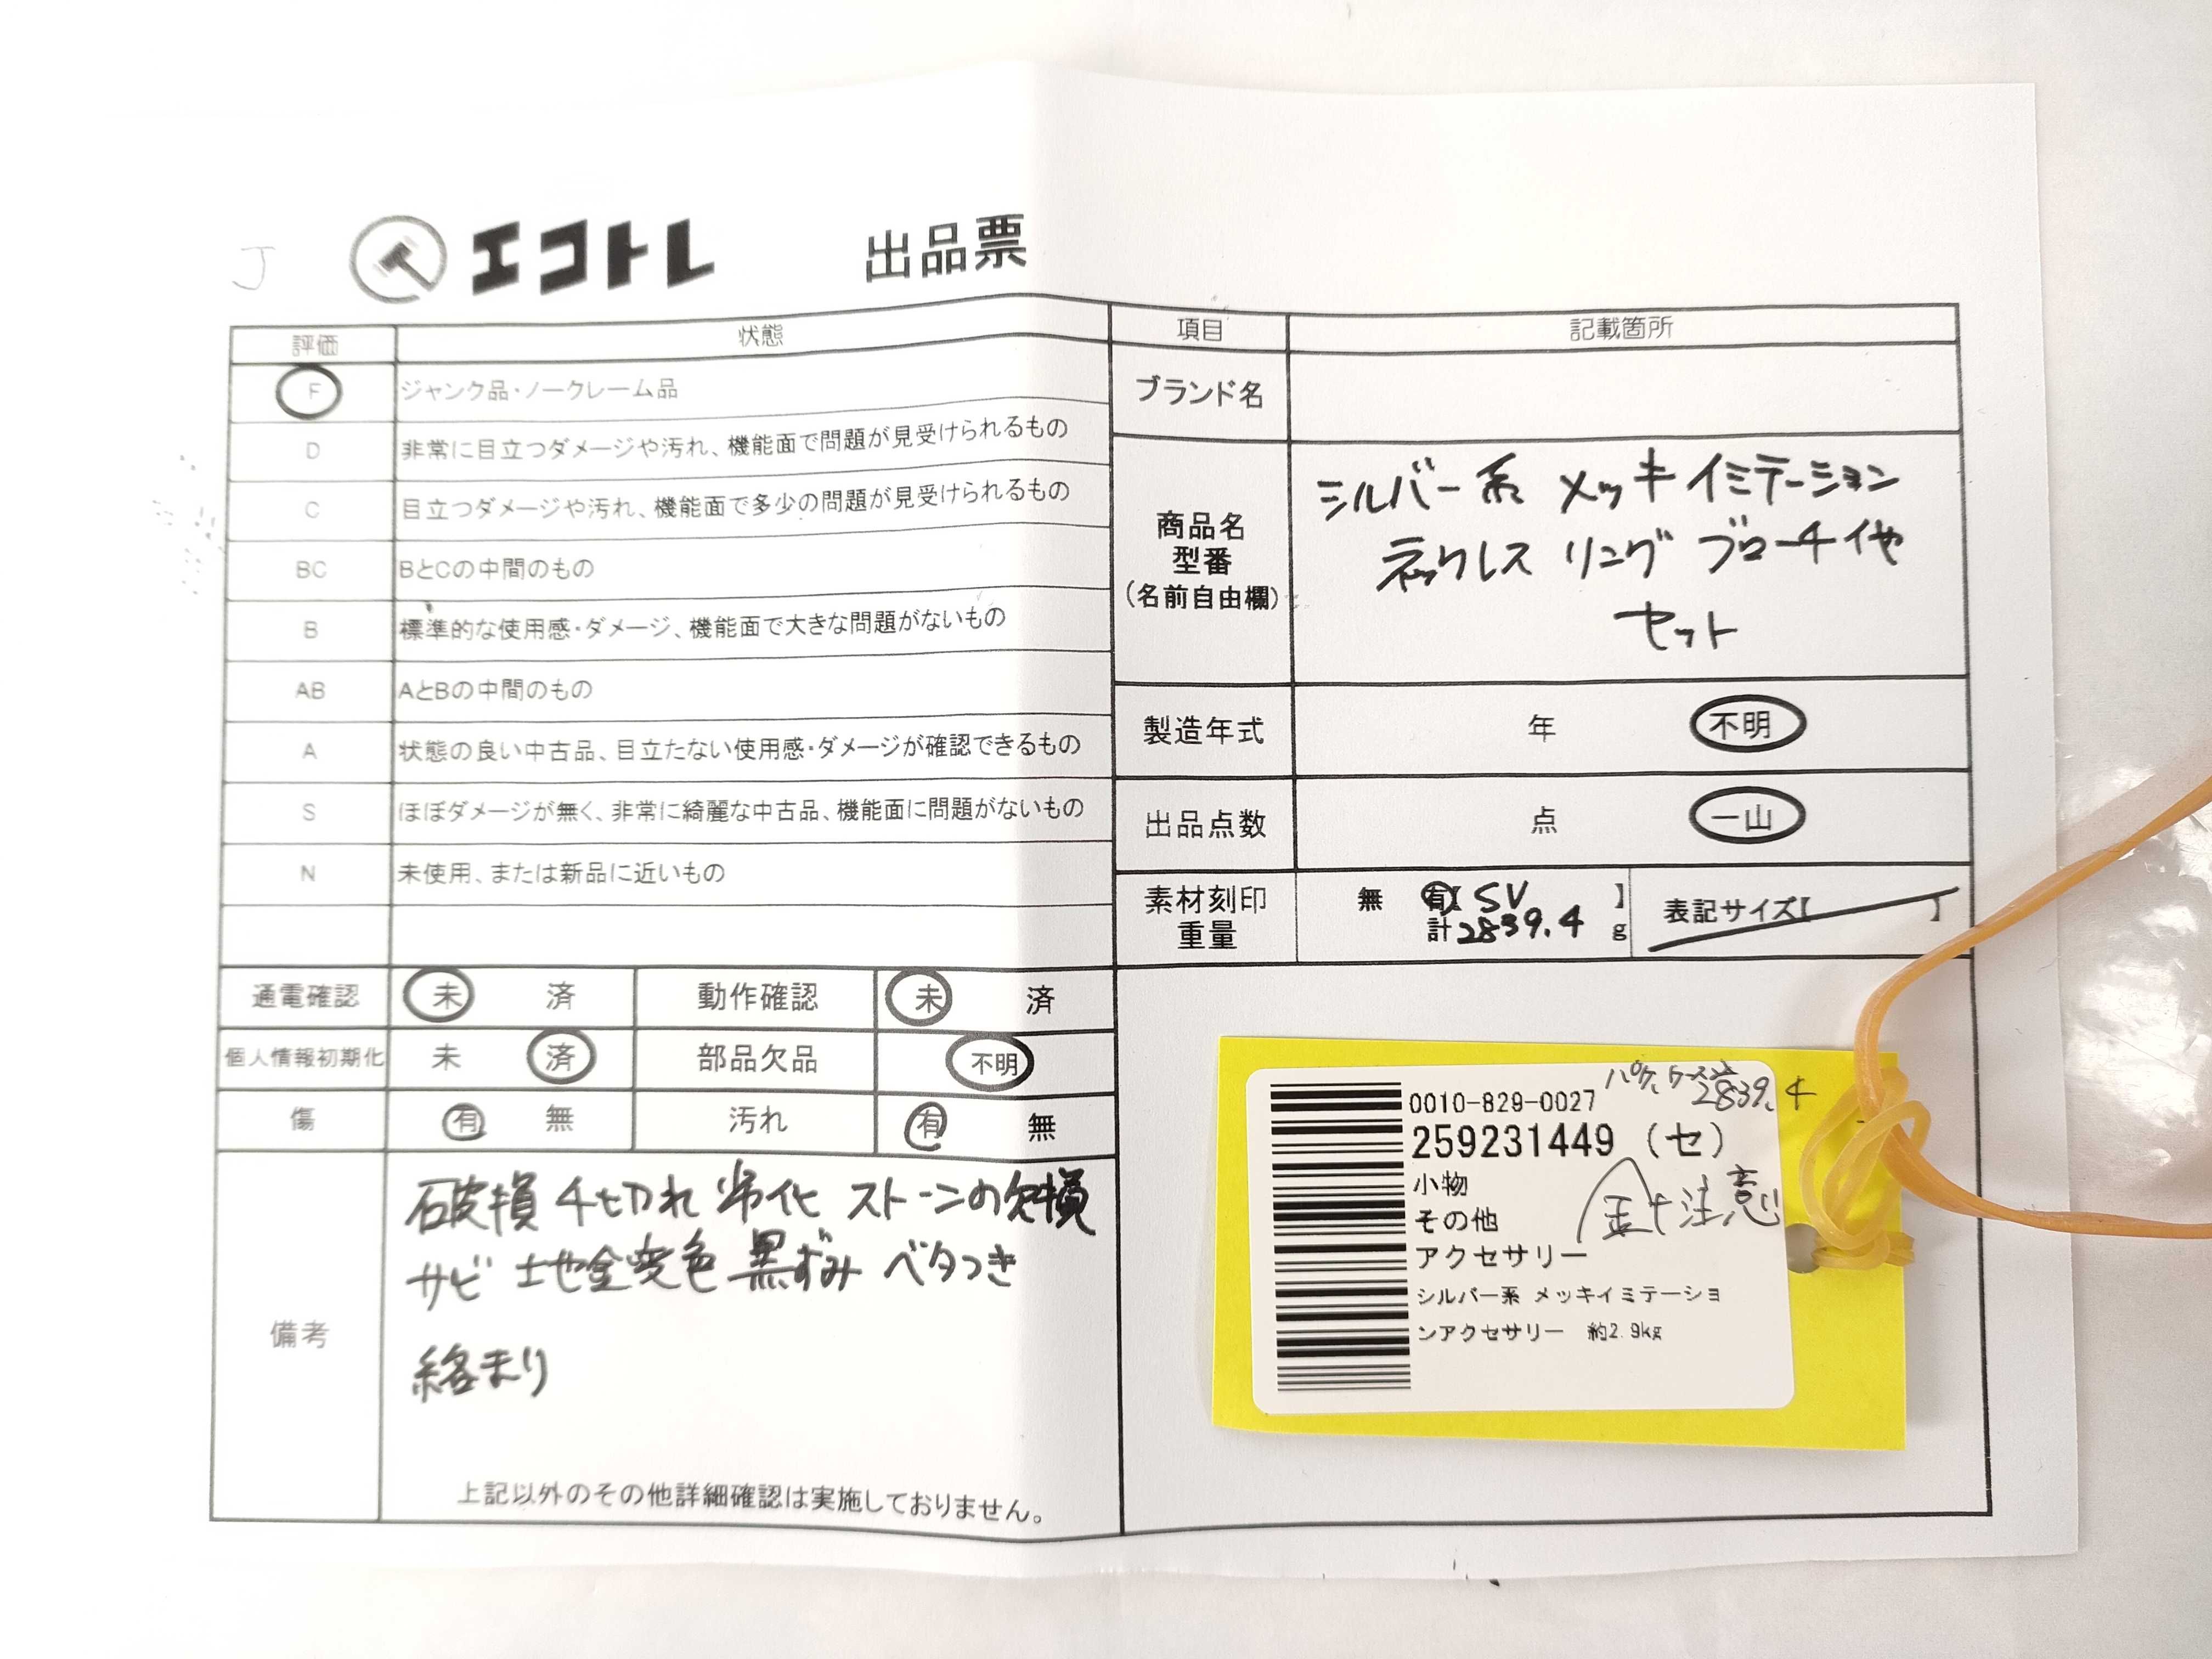 J
エコトレ 出品票
評価 状態
F ジャンク品・ノークレーム品
D 非常に目立つダメージや汚れ、機能面で問題が見受けられるもの
C 目立つダメージや汚れ、機能面で多少の問題が見受けられるもの
BC BとCの中間のもの
B 標準的な使用感・ダメージ、機能面で大きな問題がないもの
AB AとBの中間のもの
A 状態の良い中古品、目立たない使用感・ダメージが確認できるもの
S ほぼダメージが無く、非常に綺麗な中古品、機能面に問題がないもの
N 未使用、または新品に近いもの
通電確認 未 済 動作確認 未 済
個人情報初期化 未 済 部品欠品 不明
傷 有 無 汚れ 有 無
備考
破損 千切れ 劣化 ストーンの欠損
サビ 土地金変色 黒ずみ ベタつき
絡まり
上記以外のその他詳細確認は実施しておりません。
項目 記載箇所
ブランド名
商品名
型番
(名前自由欄)
シルバー系 メッキイミテーション
ネックレス リング ブローチ他
セット
製造年式 年 不明
出品点数 点 一山
素材刻印
重量
無 有【 SV 】
計 2839.4 g
表記サイズ【 】
2839.4
0010-829-0027
259231449 (セ)
小物
その他
アクセサリー
針注意
シルバー系 メッキイミテーショ
ンアクセサリー 約2.9kg